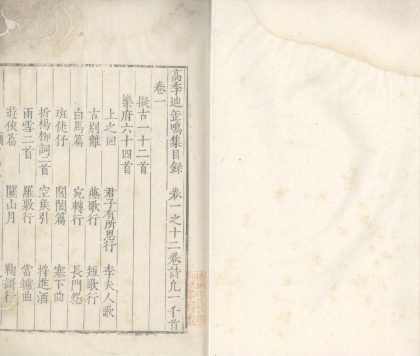 高季迪缶鳴集目録 卷一之十二卷詩凡一千首
卷一
擬古一十二首
樂府六十四首
上之回 君子有所思行 李夫人歌
古別離 燕歌行 短歌行
白馬篇 宛轉行 長門怨
班徒伃 閶闔篇 塞下曲
折楊柳詞二首 空矦引 將進酒
雨雪二首 羅敷行 當壚曲
遊俠篇 關山月 鞠詞行